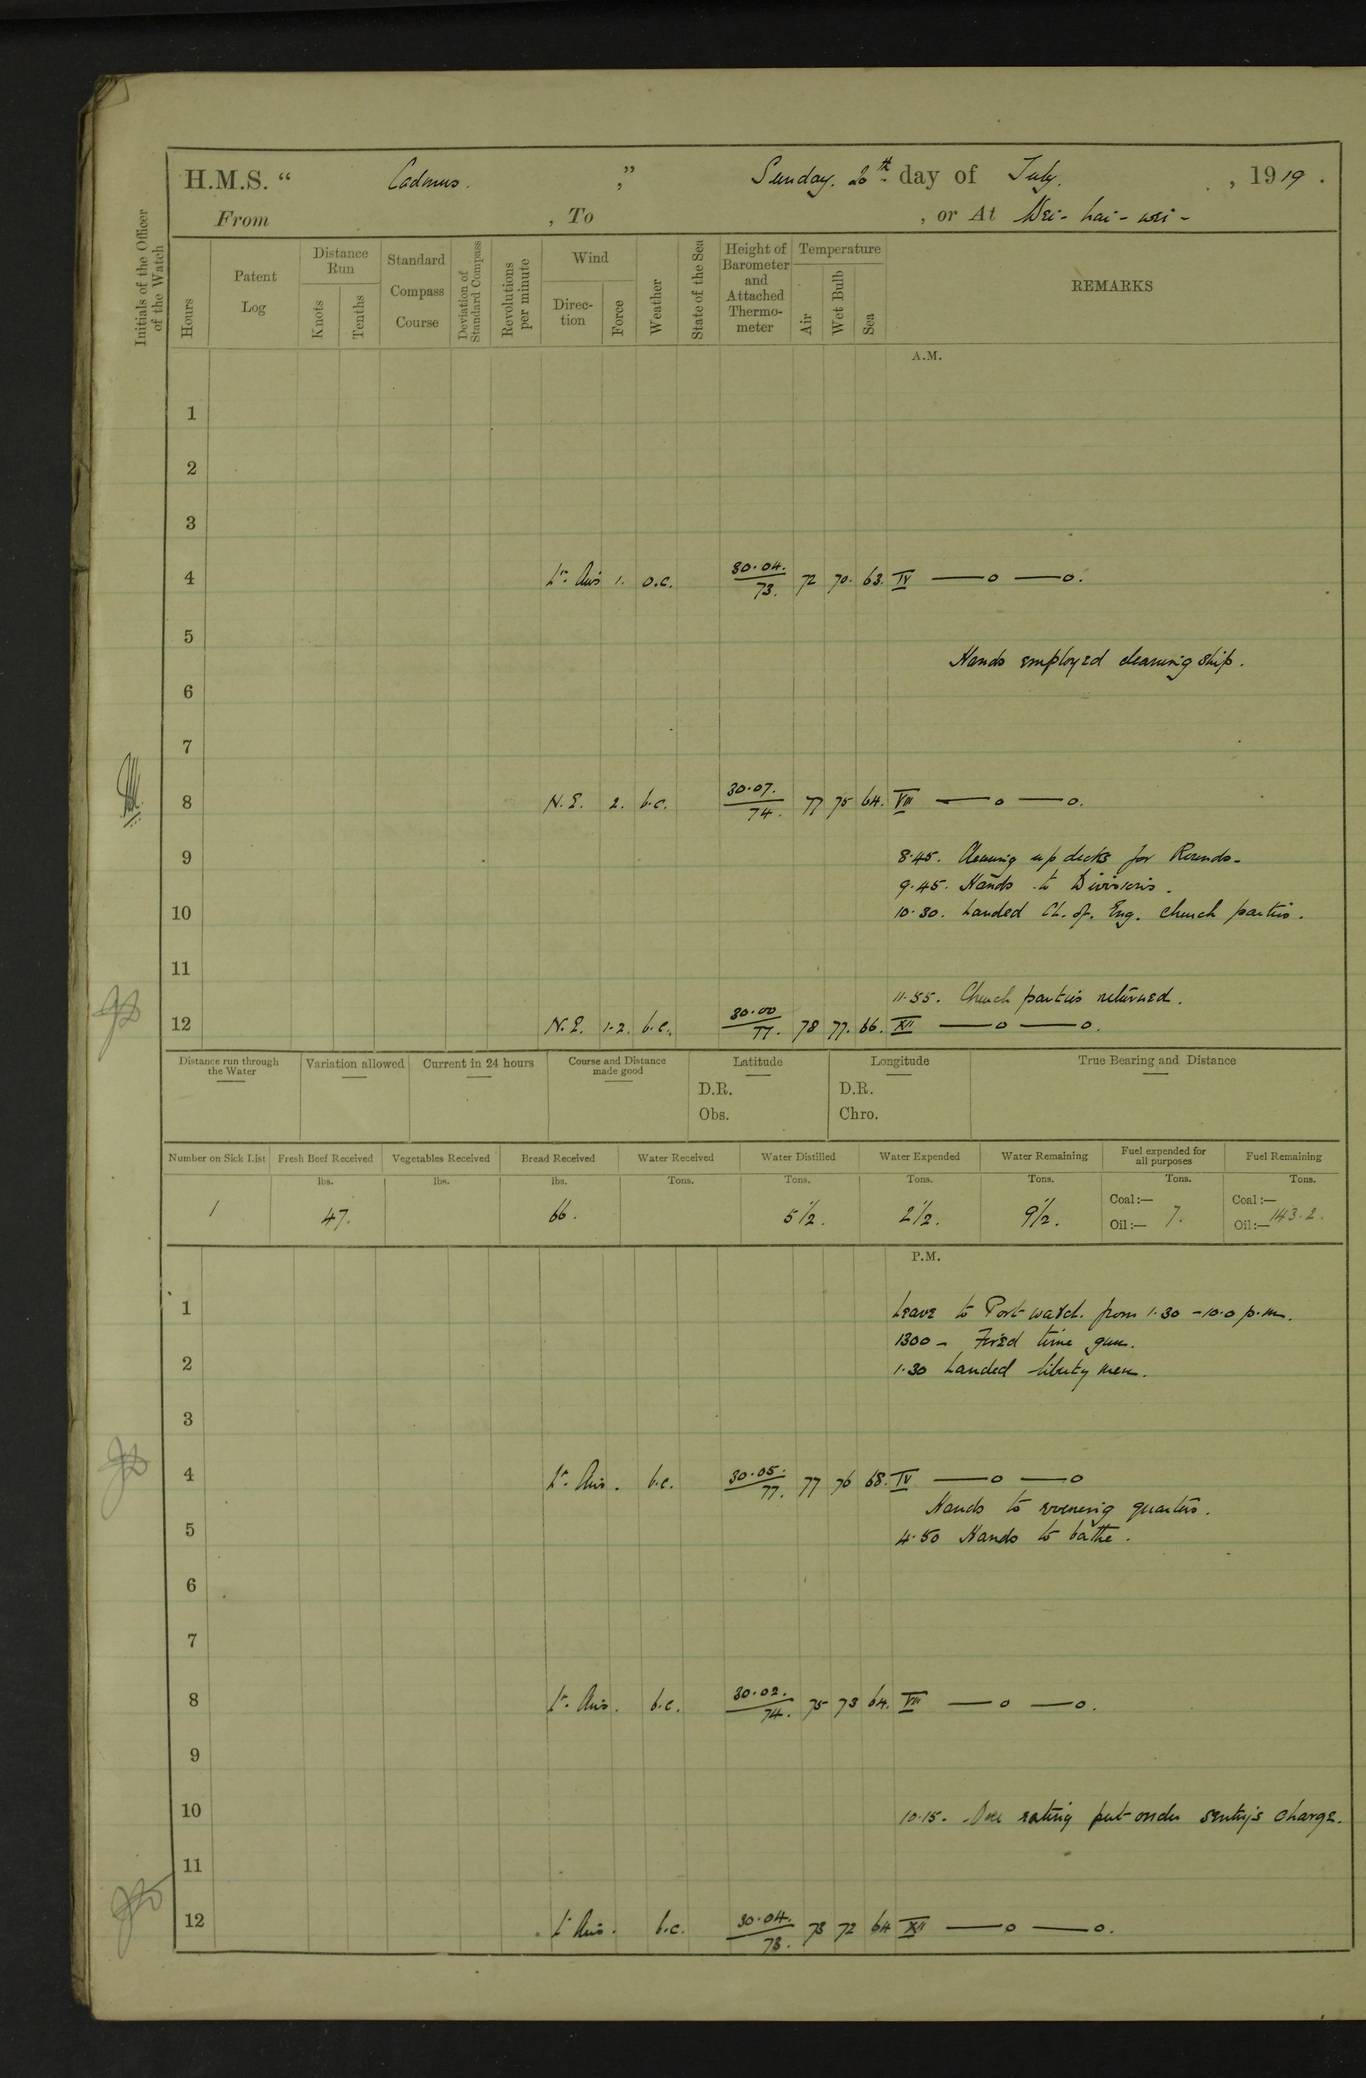 H.M.S. “ Cadmus. ,” Sunday. 20th day of July. , 1919 .
From , To , or At Wei-hai-wei-
Initials of the Officer of the Watch
Hours
Patent Log
Distance Run
Knots
Tenths
Standard Compass Course
Deviation of Standard Compass
Revolutions per minute
Wind
Direc-tion
Force
Weather
State of the Sea
Height of Barometer and Attached Thermo-meter
Temperature
Air
Wet Bulb
Sea
REMARKS
A.M.
1
2
3
4 Lt. Airs 1. o.c. 30.04. 73. 72 70. 63. IV —o —o.
5
Hands employed cleaning ship.
6
7
8 N.E. 2. b.c. 30.07. 74. 77 75 64. VIII —o —o.
9 8.45. Clearing up decks for Rounds-
9.45. Hands to Divisions.
10 10.30. Landed Ch. of. Eng. church parties.
11
11.55. Church parties returned.
12 N.E. 1-2. b.c. 30.00 77. 78 77. 66. XII —o —o.
Distance run through the Water
Variation allowed
Current in 24 hours
Course and Distance made good
Latitude
D.R.
Obs.
Longitude
D.R.
Chro.
True Bearing and Distance
Number on Sick List Fresh Beef Received Vegetables Received Bread Received Water Received Water Distilled Water Expended Water Remaining Fuel expended for all purposes Fuel Remaining
lbs. lbs. lbs. Tons. Tons. Tons. Tons. Tons. Tons.
1 47. 66. 5½. 2½. 9½. Coal:— Oil:— 7. Coal:— Oil:— 143.2.
P.M.
1 Leave to Port watch. from 1.30 - 10.0 p.m.
1300 - Fired time gun.
2 1.30 Landed liberty men.
3
4 Lt. Airs. b.c. 30.05. 77. 77 76 68. IV —o —o
Hands to evening quarters.
5 4.50 Hands to bathe.
6
7
8 Lt. Airs. b.c. 30.02. 74. 75 73 64. VIII —o —o.
9
10 10.15. One rating put under sentry's charge.
11
12 Lt Airs. b.c. 30.04. 73. 73 72 64 XII —o —o.